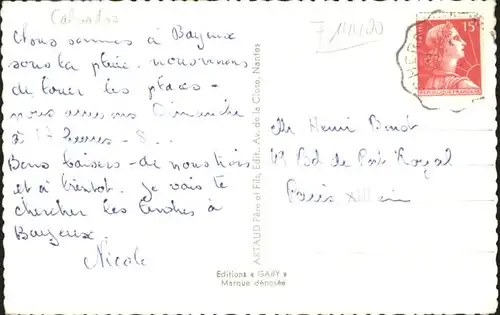 Calvados
F 14400
Nous sommes à Bayeux
sous la pluie. nous venons
de louer les places -
nous arrivons Dimanche
à 17 heures - 8 ...
Bons baisers - de nous trois
et à bientot. Je vais te
chercher les timbres à
Bayeux.
Nicole
ARTAUD Père et Fils, Edit., Av. de la Close, Nantes
Editions « GABY »
Marque déposée
15F
REPUBLIQUE FRANÇAISE
Mr Henri Binot
49 Bd de Port Royal
Paris XIIIem